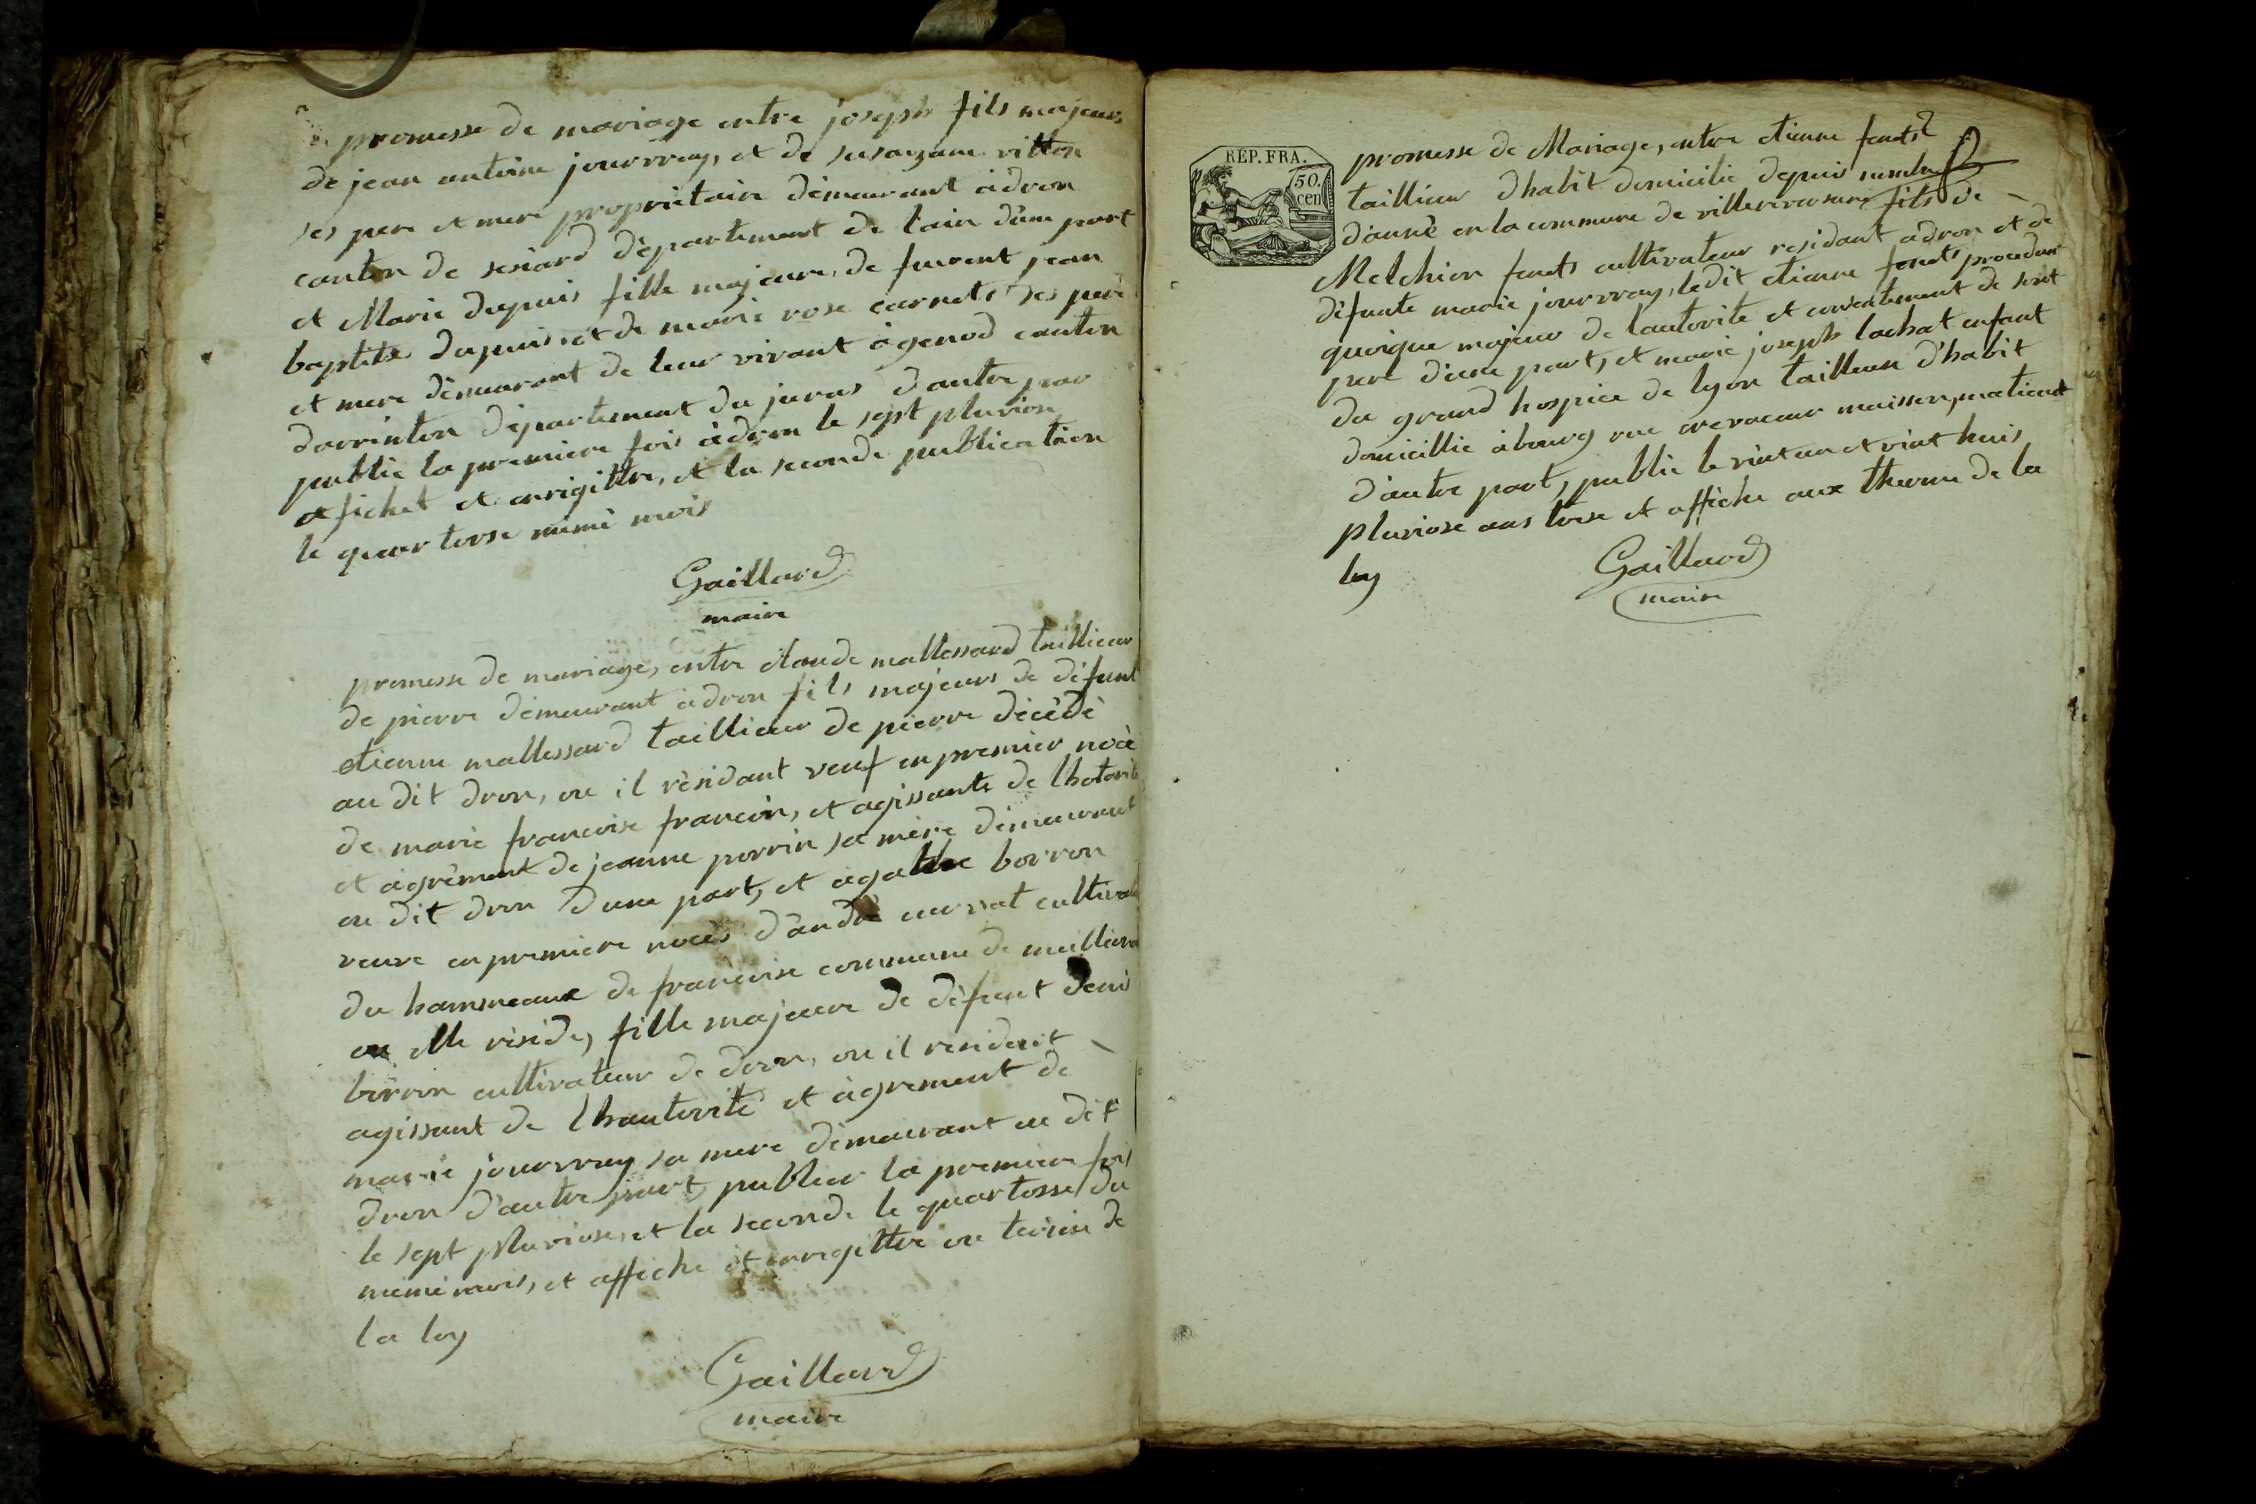 promesse de mariage entre joseph fils majeurs
de jean antoine jourvray, et de susagane ritton
ses pere et mere propriétaire démeurant àdron
canton de sesiard département de l'ain d'une part
et Marie dupuis fille majeure, de furent jean
baptiste dupuis, et de marie rose carnet, ses père
et mere démeurant de leur vivant àgenod canton
darrinton département du juras d'autre par
publié la premiere fois àdron le sept pluviose
afichet et enrigittre, et la seconde publication
le quartorse mémé mois
Gaillard
maire
promesse de mariage, entre claude mallessard taillieur
de pierre démeurant àdron fils majeurs de défunt
etienne mallessard taillieur de pierre décédé
au dit dron, ou il résidant veuf en premier noce
de marie francoise francoin, et agissante de lhotorité
et agrément de jeanne perrin sa mère démeurant
au dit dron d'une part, et agathe borron
veuve en premiere noces d'andré cursat cultivateur
du hammeaux de francoise commune de
ou elle réside, fille majeure de défunt denis
borron cultivateur de dron, ou il residait
agissant de lhautorité et agrement de
marie jourvray sa mere démeurant au dit
dron d'autre part, publier la premiere fois
le sept pluviose, et la seconde le quartosse du
mémé mois, et affiché et enregittre au termé de
la loy
Gaillard
maire
REP. FRA.
50.
cen
promesse de Mariage, entre etienne
taillieur d'habit domicilié depuis
d'année en la commune de villereversure fils de
Melchior cultivateur residant àdron et de
défunte marie jourvray, ledit etienne procedant
quoique majeur de lautorité et consentement de sont
pere d'une part, et marie joseph lachat enfant
du grand hospice de lyon tailleur d'habit
domicillié àbourg rue crevaceur maisson
d'autre part, publié le vint un et vint huis
pluviose ans torse et affiché aux therme de la
loy
Gaillard
maire